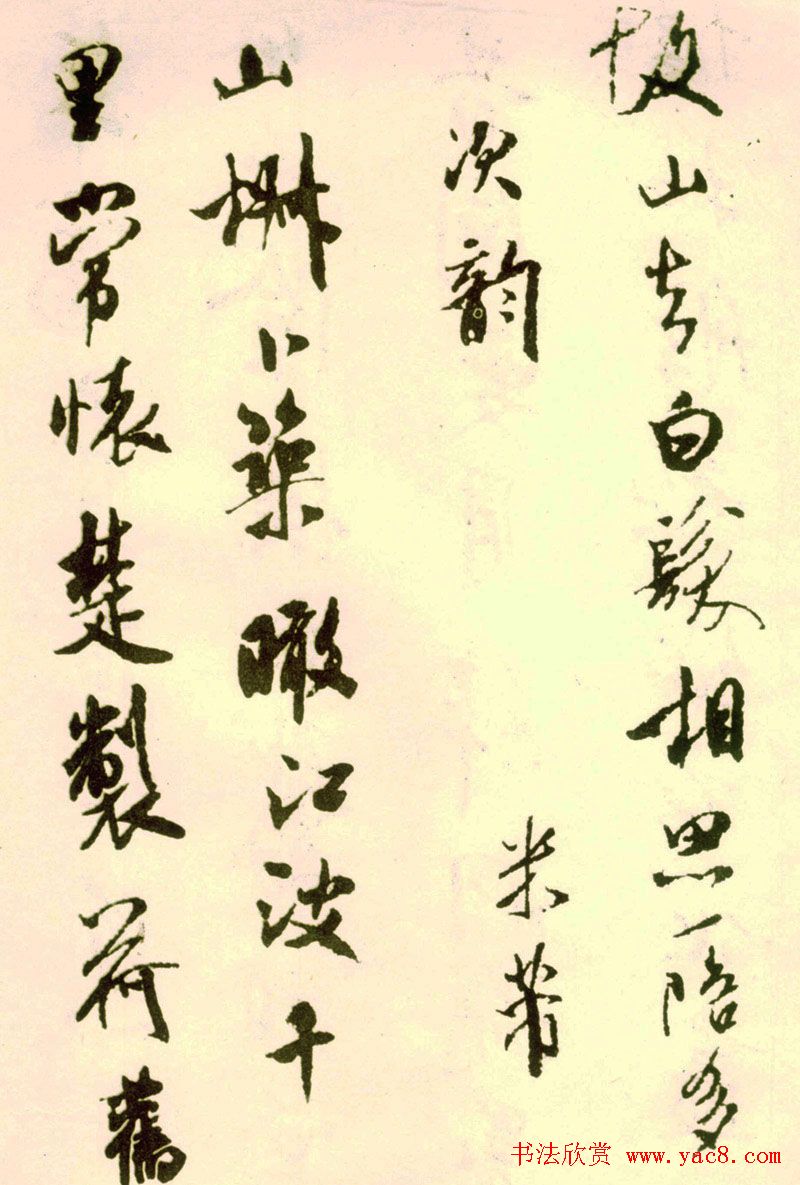 故山去白髮相思一陪多
次韵 米芾
山堋卜築瞰江波千
里常懷楚製荷舊
书法欣赏 www.yac8.com